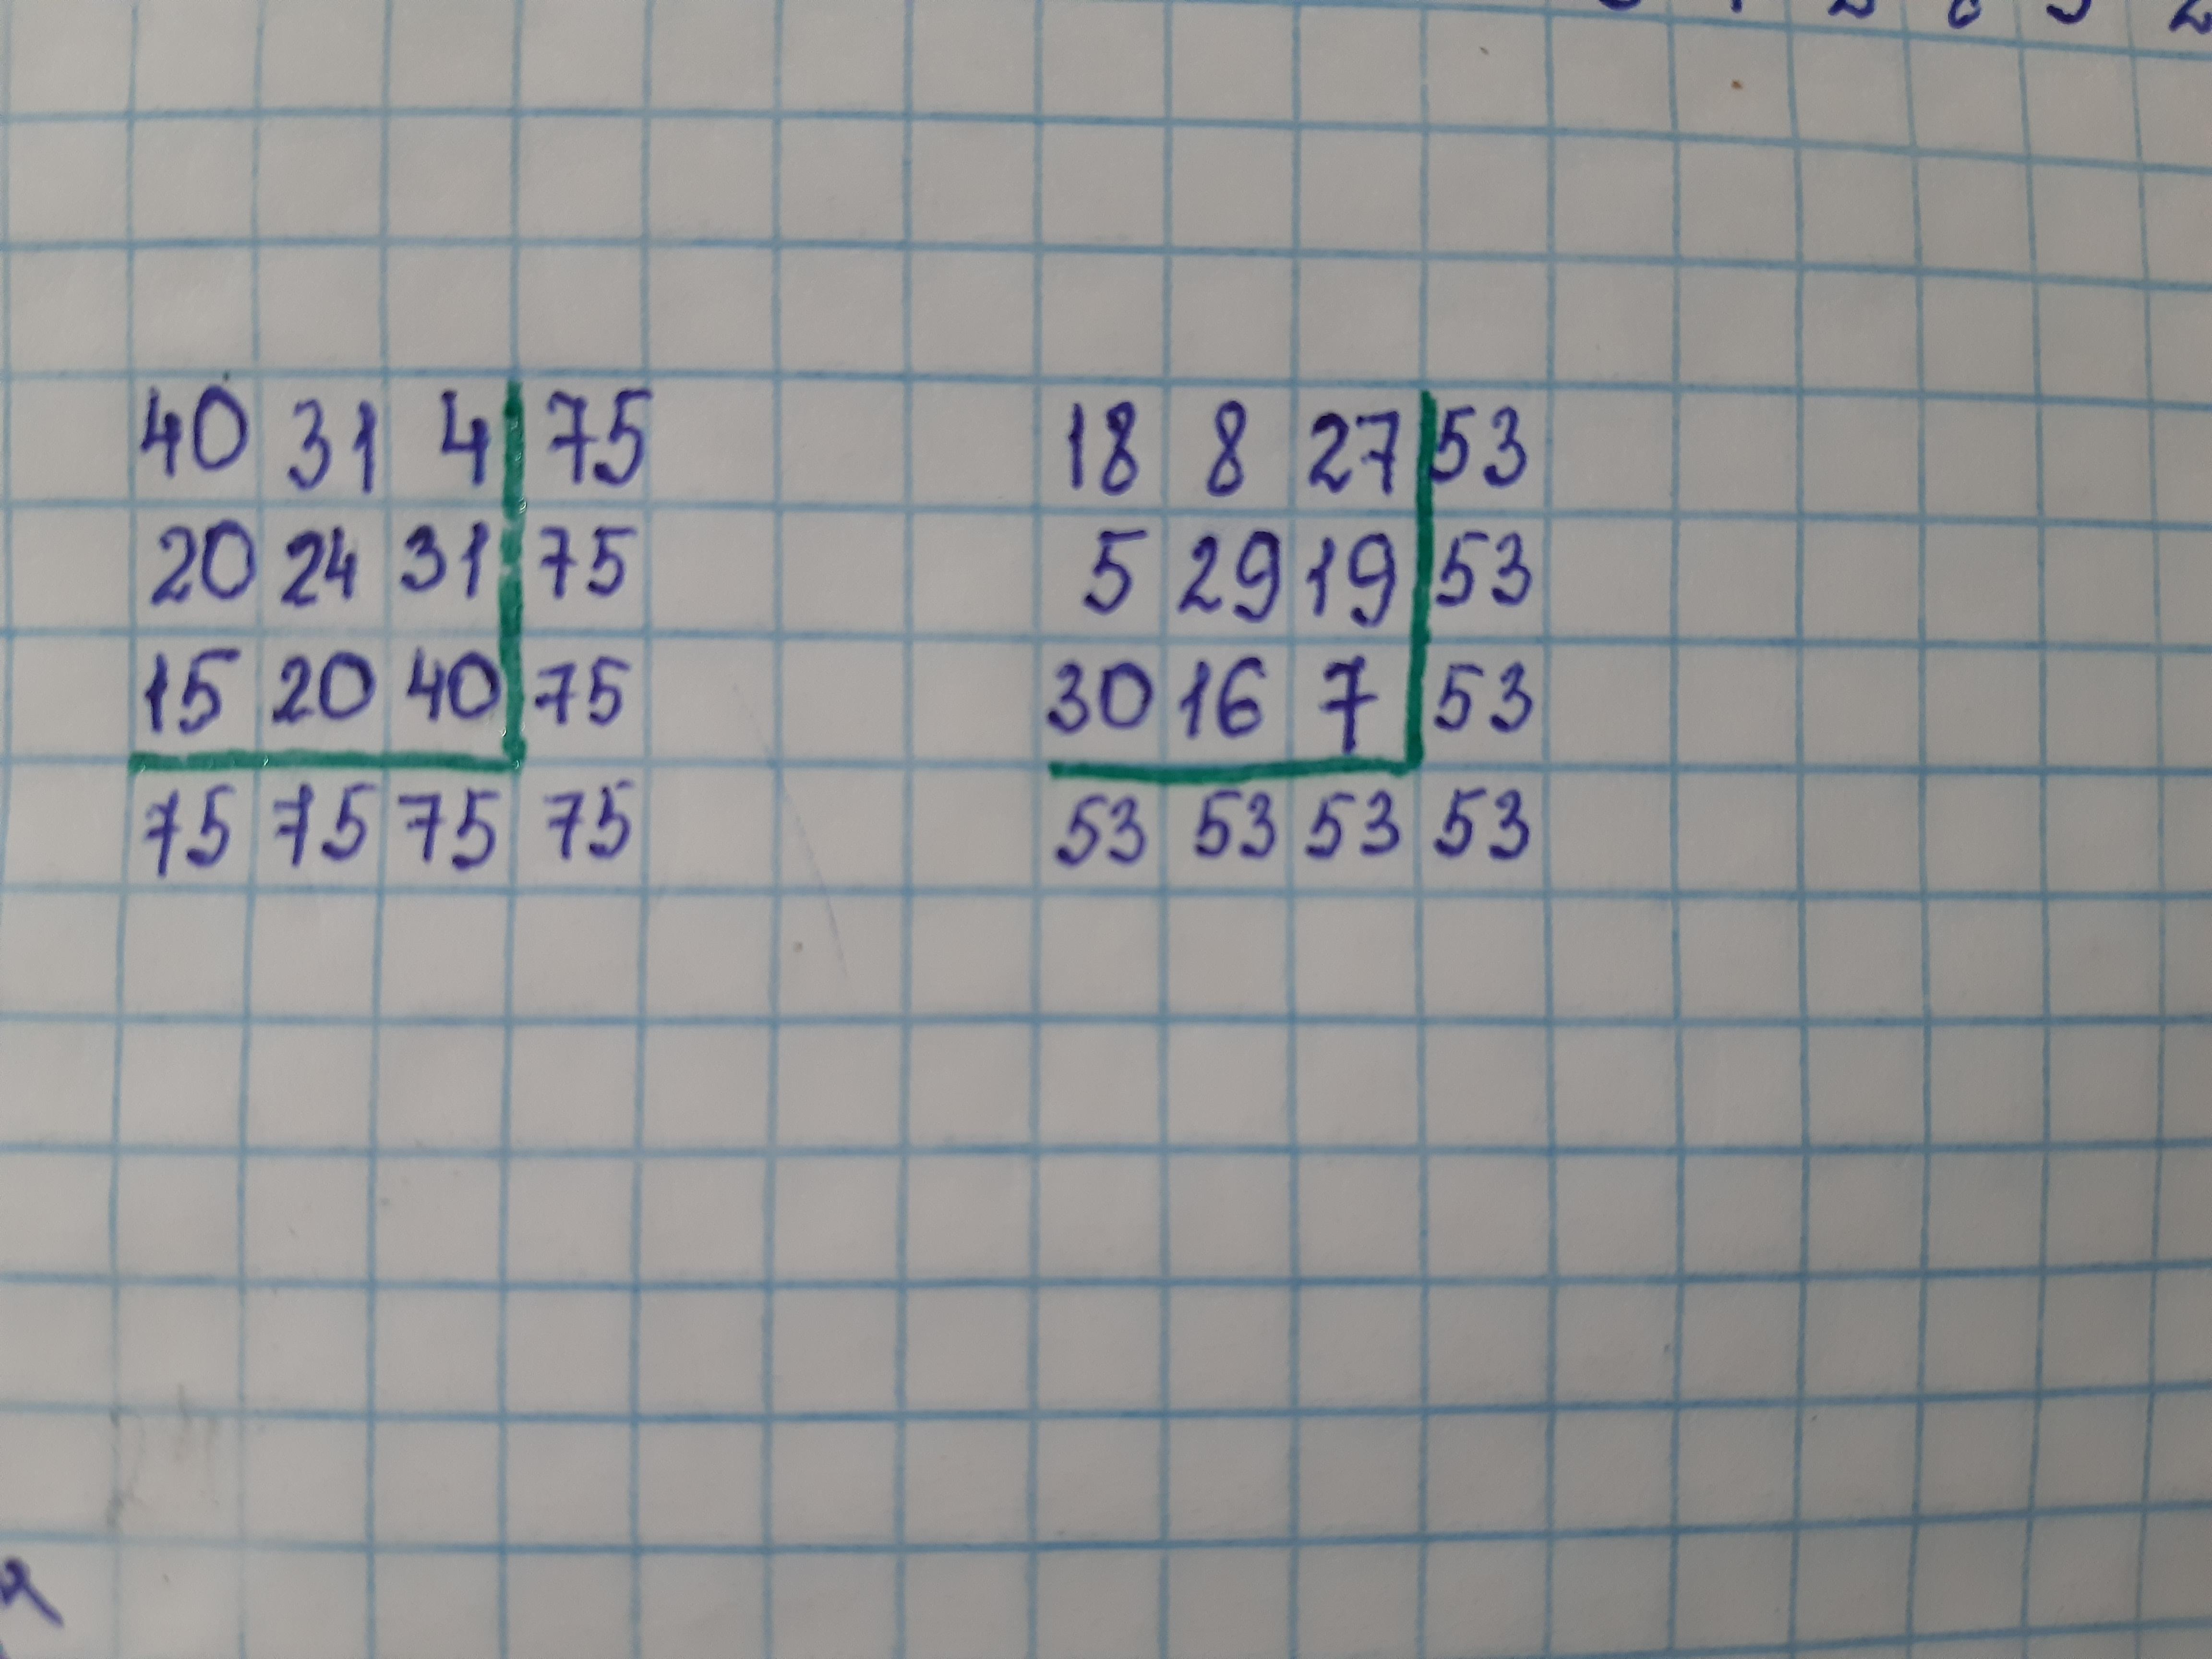 40 31 4 75 18 8 27 53
20 24 31 75 5 29 19 53
15 20 40 75 30 16 7 53
75 75 75 75 53 53 53 53